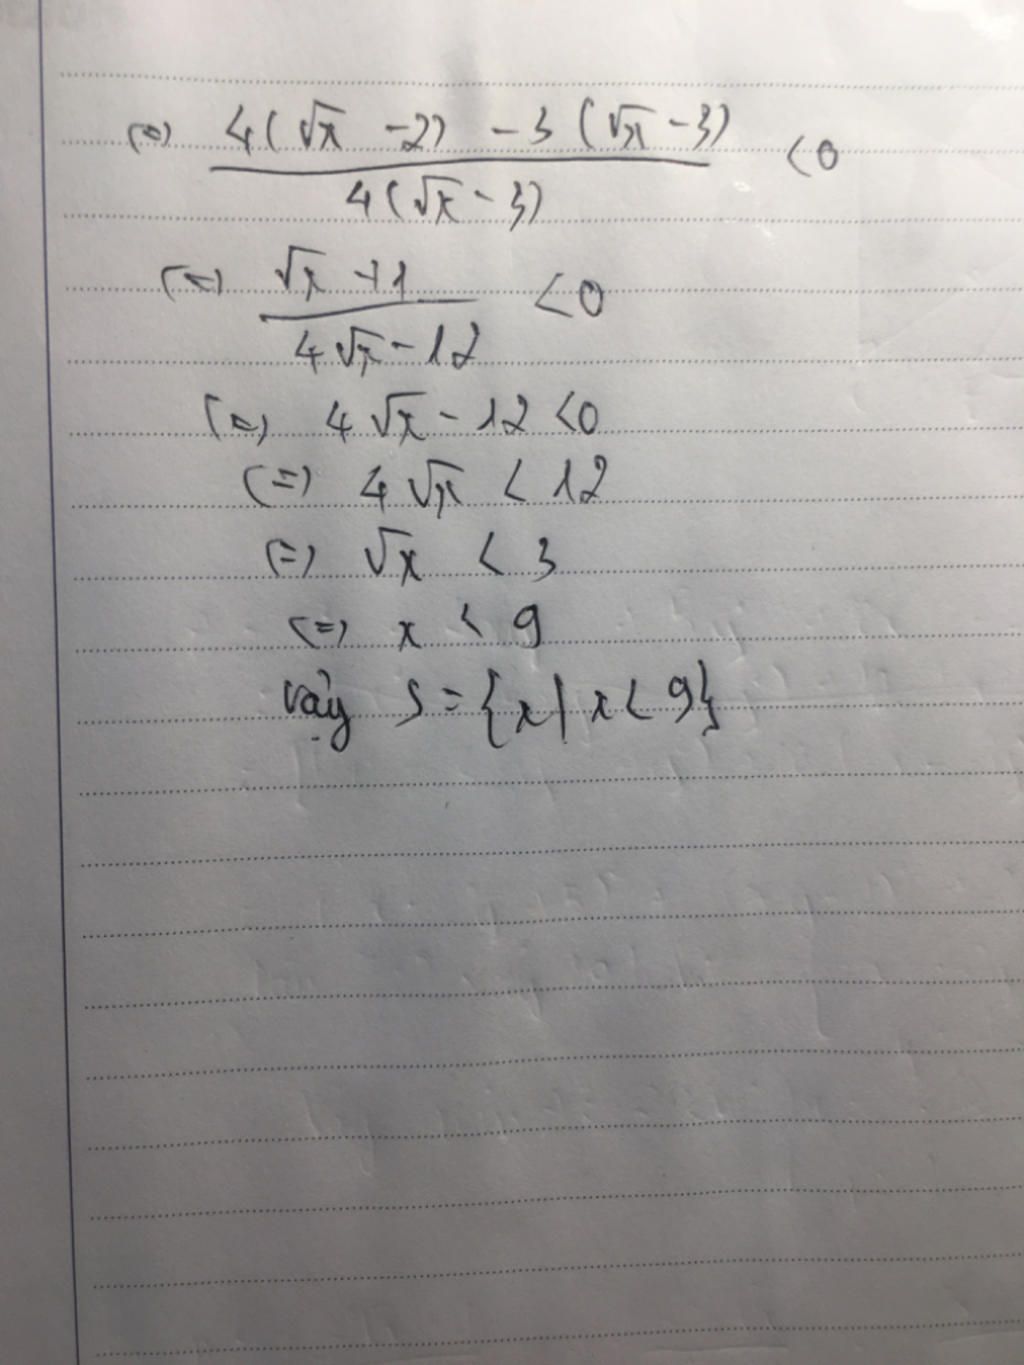 (=) 4(√x - 2) - 3(√x - 3) / 4(√x - 3) < 0
(=) √x + 1 / 4√x - 12 < 0
(=) 4√x - 12 < 0
(=) 4√x < 12
(=) √x < 3
(=) x < 9
vậy S = {x | x < 9}